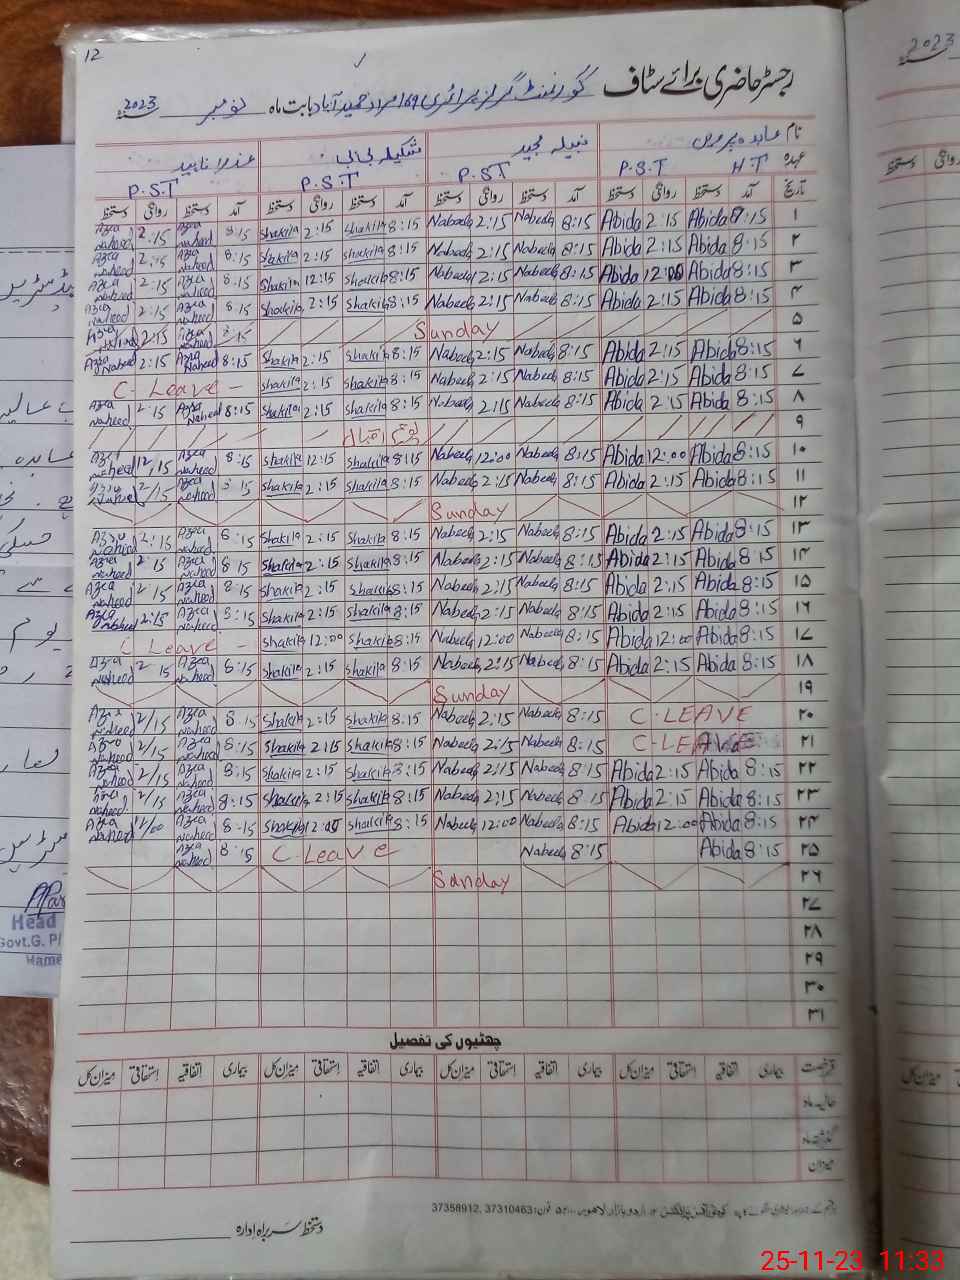 12
رجسٹر حاضری برائے سٹاف
گورنمنٹ گرلز پرائمری 169 مراد حمید آباد بابت ماہ نومبر 2023
نام عابدہ پروین نبیلہ مجید شکیلہ عذرا ناہید
عہدہ H.T P.S.T P.S.T P.S.T P.S.T
تاریخ آمد دستخط روانگی دستخط آمد دستخط روانگی دستخط آمد دستخط روانگی دستخط آمد دستخط روانگی دستخط
Azra Naheed 2:15 Azra Naheed 8:15 Shakila 2:15 Shakila 8:15 Nabeela 2:15 Nabeela 8:15 Abida 2:15 Abida 8:15 ۱
Azra Naheed 2:15 Azra Naheed 8:15 Shakila 2:15 Shakila 8:15 Nabeela 2:15 Nabeela 8:15 Abida 2:15 Abida 8:15 ۲
Azra Naheed 2:15 Azra Naheed 8:15 Shakila 12:15 Shakila 8:15 Nabeela 12:15 Nabeela 8:15 Abida 12:00 Abida 8:15 ۳
Azra Naheed 2:15 Azra Naheed 8:15 Shakila 2:15 Shakila 8:15 Nabeela 2:15 Nabeela 8:15 Abida 2:15 Abida 8:15 ۴
Azra Naheed 2:15 Azra Naheed 8:15 Sunday ۵
Azra Naheed 2:15 Azra Naheed 8:15 Shakila 2:15 Shakila 8:15 Nabeela 2:15 Nabeela 8:15 Abida 2:15 Abida 8:15 ۶
C-Leave - Shakila 2:15 Shakila 8:15 Nabeela 2:15 Nabeela 8:15 Abida 2:15 Abida 8:15 ۷
Azra Naheed 2:15 Azra Naheed 8:15 Shakila 2:15 Shakila 8:15 Nabeela 2:15 Nabeela 8:15 Abida 2:15 Abida 8:15 ۸
یوم اقبال ۹
Azra Naheed 12/15 Azra Naheed 8:15 Shakila 12:15 Shakila 8:15 Nabeela 12:00 Nabeela 8:15 Abida 12:00 Abida 8:15 ۱۰
Azra Naheed 2/15 Azra Naheed 8:15 Shakila 2:15 Shakila 8:15 Nabeela 2:15 Nabeela 8:15 Abida 2:15 Abida 8:15 ۱۱
Sunday ۱۲
Azra Naheed 2:15 Azra Naheed 8:15 Shakila 2:15 Shakila 8:15 Nabeela 2:15 Nabeela 8:15 Abida 2:15 Abida 8:15 ۱۳
Azra Naheed 2:15 Azra Naheed 8:15 Shakila 2:15 Shakila 8:15 Nabeela 2:15 Nabeela 8:15 Abida 2:15 Abida 8:15 ۱۴
Azra Naheed 2/15 Azra Naheed 8:15 Shakila 2:15 Shakila 8:15 Nabeela 2:15 Nabeela 8:15 Abida 2:15 Abida 8:15 ۱۵
Azra Naheed 2:15 Azra Naheed 8:15 Shakila 2:15 Shakila 8:15 Nabeela 2:15 Nabeela 8:15 Abida 2:15 Abida 8:15 ۱۶
C Leave - Shakila 12:00 Shakila 8:15 Nabeela 12:00 Nabeela 8:15 Abida 12:00 Abida 8:15 ۱۷
Azra Naheed 2 15 Azra Naheed 8:15 Shakila 2:15 Shakila 8:15 Nabeela 2:15 Nabeela 8:15 Abida 2:15 Abida 8:15 ۱۸
Sunday ۱۹
Azra Naheed 2/15 Azra Naheed 8:15 Shakila 2:15 Shakila 8:15 Nabeela 2:15 Nabeela 8:15 C-LEAVE ۲۰
Azra Naheed 2/15 Azra Naheed 8:15 Shakila 2:15 Shakila 8:15 Nabeela 2:15 Nabeela 8:15 C-LEAVE ۲۱
Azra Naheed 2/15 Azra Naheed 8:15 Shakila 2:15 Shakila 8:15 Nabeela 2:15 Nabeela 8:15 Abida 2:15 Abida 8:15 ۲۲
Azra Naheed 2/15 Azra Naheed 8:15 Shakila 2:15 Shakila 8:15 Nabeela 2:15 Nabeela 8 15 Abida 2:15 Abida 8:15 ۲۳
Azra Naheed 12/00 Azra Naheed 8:15 Shakila 12:00 Shakila 8:15 Nabeela 12:00 Nabeela 8:15 Abida 12:00 Abida 8:15 ۲۴
Azra Naheed 8:15 C-Leave Nabeela 8:15 Abida 8:15 ۲۵
Sunday ۲۶
۲۷
۲۸
۲۹
۳۰
۳۱
چھٹیوں کی تفصیل
قسم رخصت بیماری اتفاقیہ استحقاقی میزان کل بیماری اتفاقیہ استحقاقی میزان کل بیماری اتفاقیہ استحقاقی میزان کل بیماری اتفاقیہ استحقاقی میزان کل
حالیہ ماہ
گذشتہ ماہ
میزان
اردو بازار لاہور فون: 37310463, 37358912
دستخط سربراہ ادارہ
Head
Govt.G. P/
Hame
2023
25-11-23 11:33